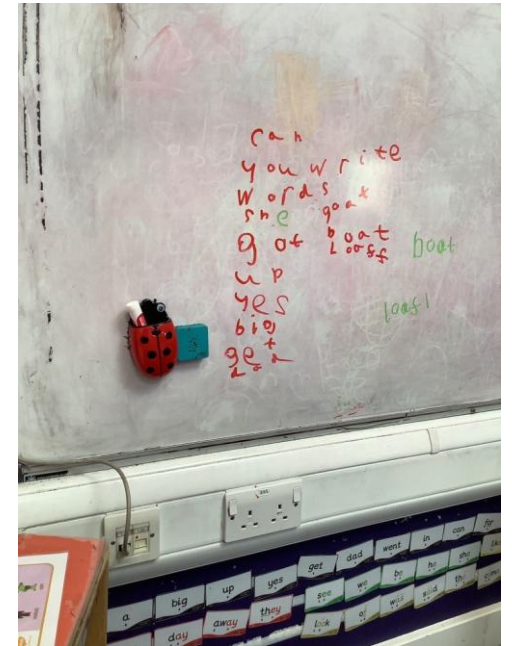 can
you write
words
she goat
got boat
loaff boat
up
yes
big
get
a big up yes get dad went in can for
day away they see we be he she
look of was said the